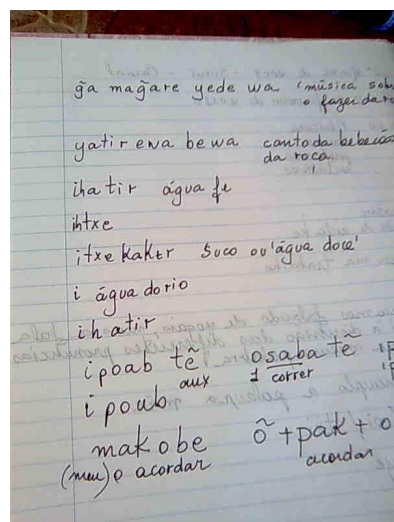 g̃a mag̃are yede wa (música sob
o fazer da ro
yatir ewa bewa canto da bebe
da roça
ihatir água fe
ihtxe
itxe kakɨr suco ou 'água doce'
i água do rio
ihatir
ipoab tẽ osaba tẽ ip
aux 1 correr
ipoub
makobe õ + pak + o
(meu) o acordar acordar